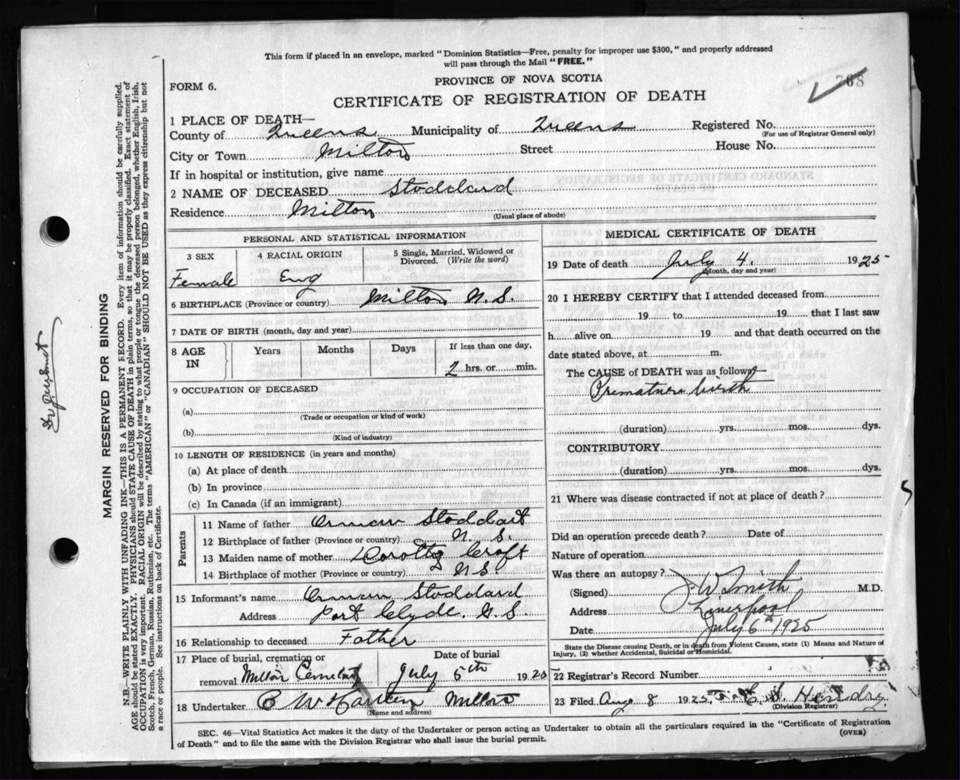 This form if placed in an envelope, marked "Dominion Statistics—Free, penalty for improper use $300," and properly addressed
will pass through the Mail "FREE."
FORM 6.
PROVINCE OF NOVA SCOTIA
708
CERTIFICATE OF REGISTRATION OF DEATH
1 PLACE OF DEATH—
County of Queens Municipality of Queens Registered No.
(For use of Registrar General only)
City or Town Milton Street House No.
If in hospital or institution, give name
2 NAME OF DECEASED Stoddard
Residence Milton
(Usual place of abode)
PERSONAL AND STATISTICAL INFORMATION
3 SEX 4 RACIAL ORIGIN 5 Single, Married, Widowed or Divorced. (Write the word)
Female Eng
6 BIRTHPLACE (Province or country) Milton N.S.
7 DATE OF BIRTH (month, day and year)
8 AGE IN Years Months Days If less than one day,
2 hrs. or min.
9 OCCUPATION OF DECEASED
(a)
(Trade or occupation or kind of work)
(b)
(Kind of industry)
10 LENGTH OF RESIDENCE (in years and months)
(a) At place of death
(b) In province
(c) In Canada (if an immigrant)
Parents
11 Name of father Orman Stoddart
12 Birthplace of father (Province or country) N.S.
13 Maiden name of mother Dorothy Croft
14 Birthplace of mother (Province or country) N.S.
15 Informant's name Orman Stoddard
Address Port Clyde, N.S.
16 Relationship to deceased Father
17 Place of burial, cremation or removal Milton Cemetery
Date of burial July 5th 1925
18 Undertaker C W Milton
(Name and address)
MEDICAL CERTIFICATE OF DEATH
19 Date of death July 4. 1925
(Month, day and year)
20 I HEREBY CERTIFY that I attended deceased from
19 to 19 that I last saw
h alive on 19 and that death occurred on the
date stated above, at m.
The CAUSE of DEATH was as follows
Premature birth
(duration) yrs. mos. dys.
CONTRIBUTORY
(duration) yrs. mos. dys.
21 Where was disease contracted if not at place of death?
Did an operation precede death? Date of
Nature of operation
Was there an autopsy?
(Signed) J W Smith M.D.
Address Liverpool
Date July 6th 1925
State the Disease causing Death, or in death from Violent Causes, state (1) Means and Nature of
Injury, (2) whether Accidental, Suicidal or Homicidal.
22 Registrar's Record Number
23 Filed Aug 8 1925
(Division Registrar)
SEC. 46—Vital Statistics Act makes it the duty of the Undertaker or person acting as Undertaker to obtain all the particulars required in the "Certificate of Registration
of Death" and to file the same with the Division Registrar who shall issue the burial permit.
(OVER)
MARGIN RESERVED FOR BINDING
N.B.—WRITE PLAINLY WITH UNFADING INK—THIS IS A PERMANENT RECORD. Every item of information should be carefully supplied.
AGE should be stated EXACTLY. PHYSICIANS should STATE CAUSE OF DEATH in plain terms, so that it may be properly classified. Exact statement of
OCCUPATION is very important. RACIAL ORIGIN will be described by stating to what people or tongue the deceased person belonged, whether English, Irish,
Scotch, French, German, Russian, Ruthenian, etc. The terms "AMERICAN" or "CANADIAN" SHOULD NOT BE USED as they express citizenship but not
a race or people. See instructions on back of Certificate.